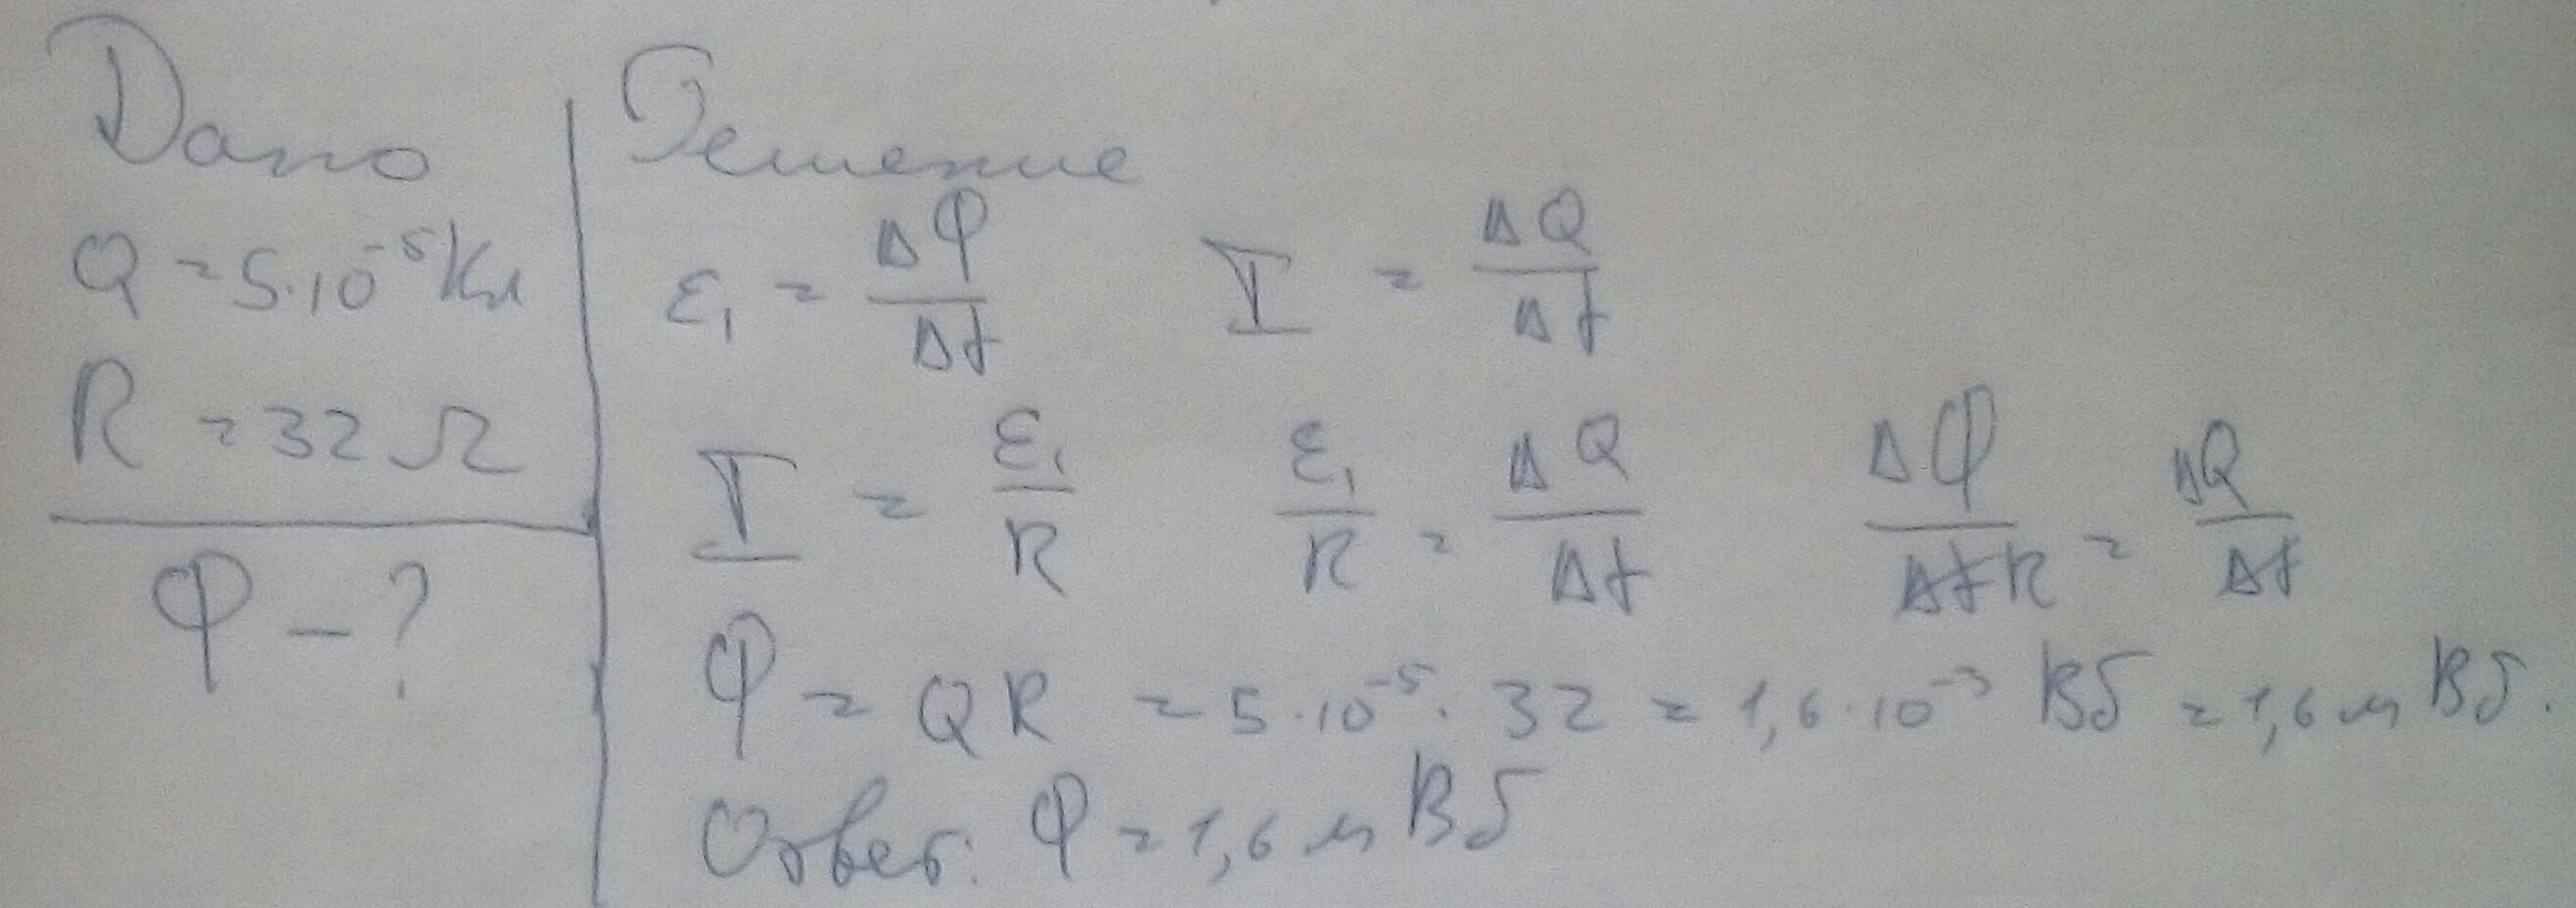 Дано
Q = 5·10⁻⁵ Кл
R = 32 Ω
Φ – ?
Решение
εᵢ = ΔΦ/Δt    I = ΔQ/Δt
I = εᵢ/R    εᵢ/R = ΔQ/Δt    ΔΦ/ΔtR = ΔQ/Δt
Φ = QR = 5·10⁻⁵·32 = 1,6·10⁻³ Вб = 1,6 м Вб.
Ответ: Φ = 1,6 м Вб